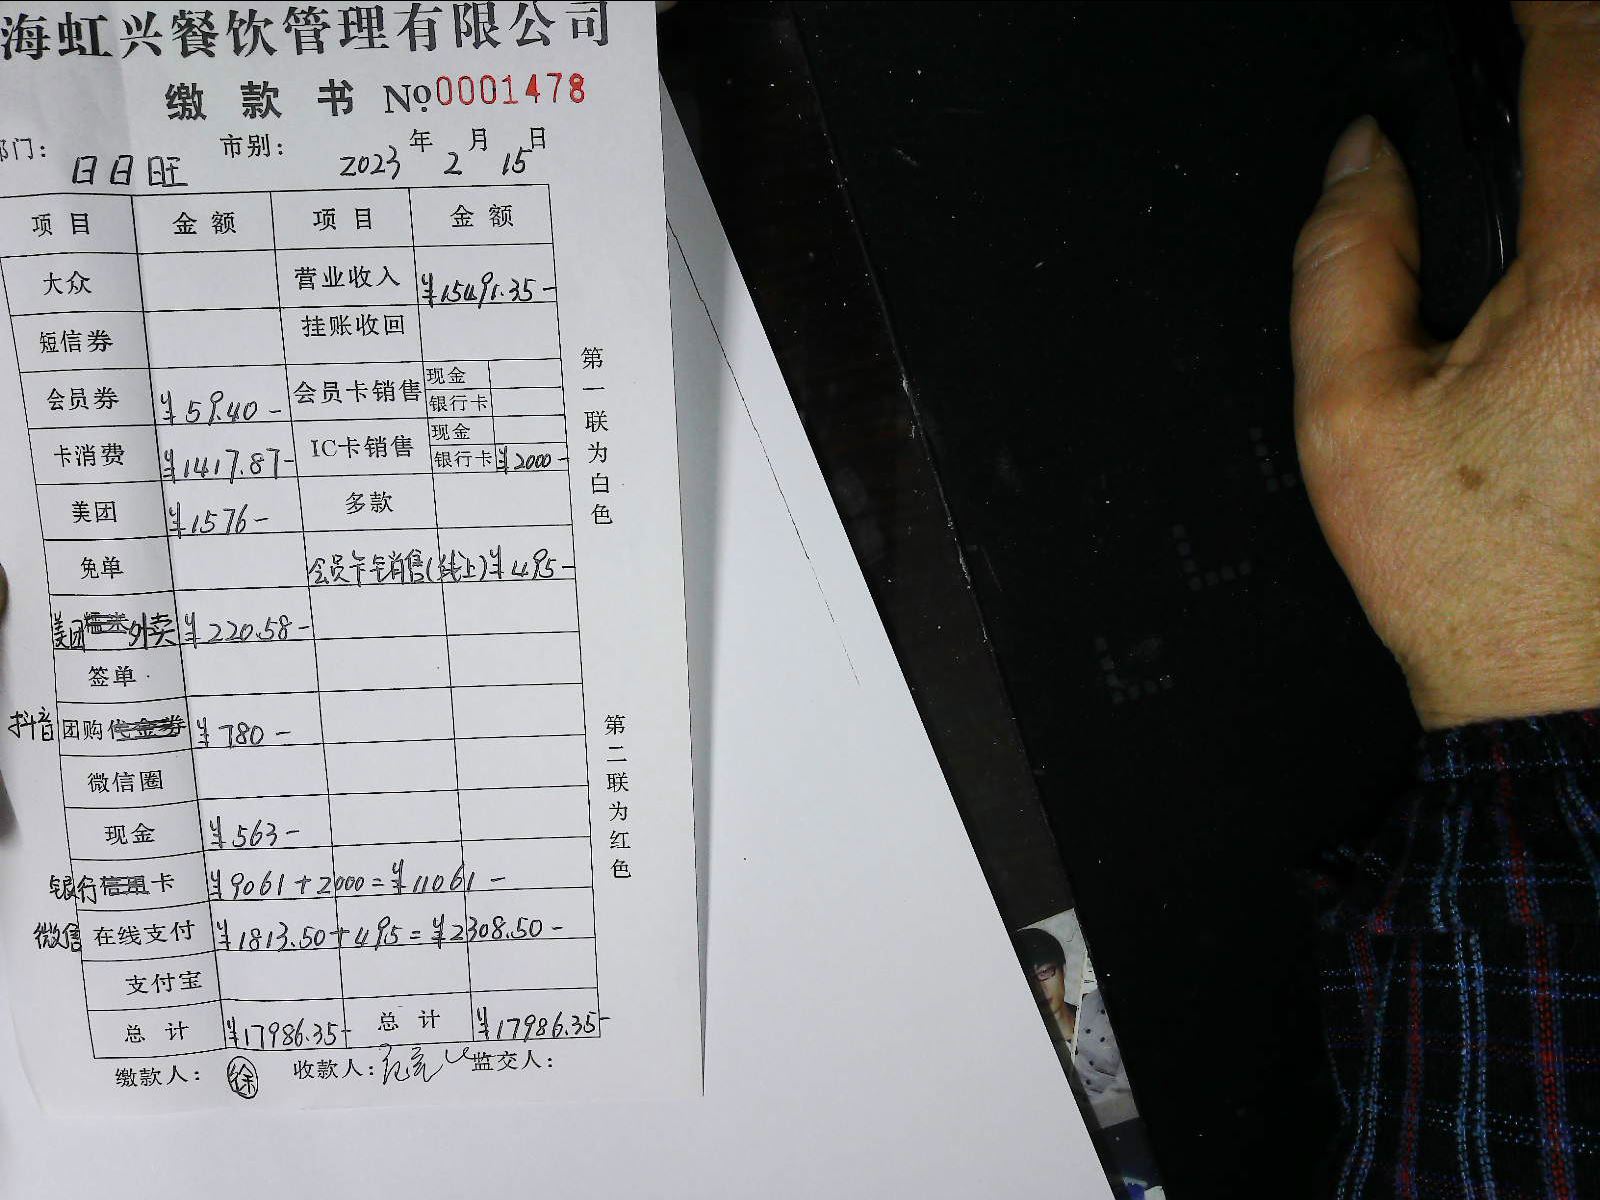 海虹兴餐饮管理有限公司
缴款书 No 0001478
部门: 日日旺 市别: 2023年2月15日
项目 金额 项目 金额
大众 营业收入 ¥15491.35-
短信券 挂账收回
会员券 ¥59.40- 会员卡销售 现金
银行卡
卡消费 ¥1417.87- IC卡销售 现金
银行卡 ¥2000-
美团 ¥1576- 多款
免单 会员卡销售(线上) ¥495-
美团外卖 ¥220.58-
签单
抖音团购代金券 ¥780-
微信圈
现金 ¥563-
银行信用卡 ¥9061+2000=¥11061-
微信在线支付 ¥1813.50+495=¥2308.50-
支付宝
总计 ¥17986.35- 总计 ¥17986.35-
缴款人: 徐 收款人: 监交人:
第一联为白色
第二联为红色